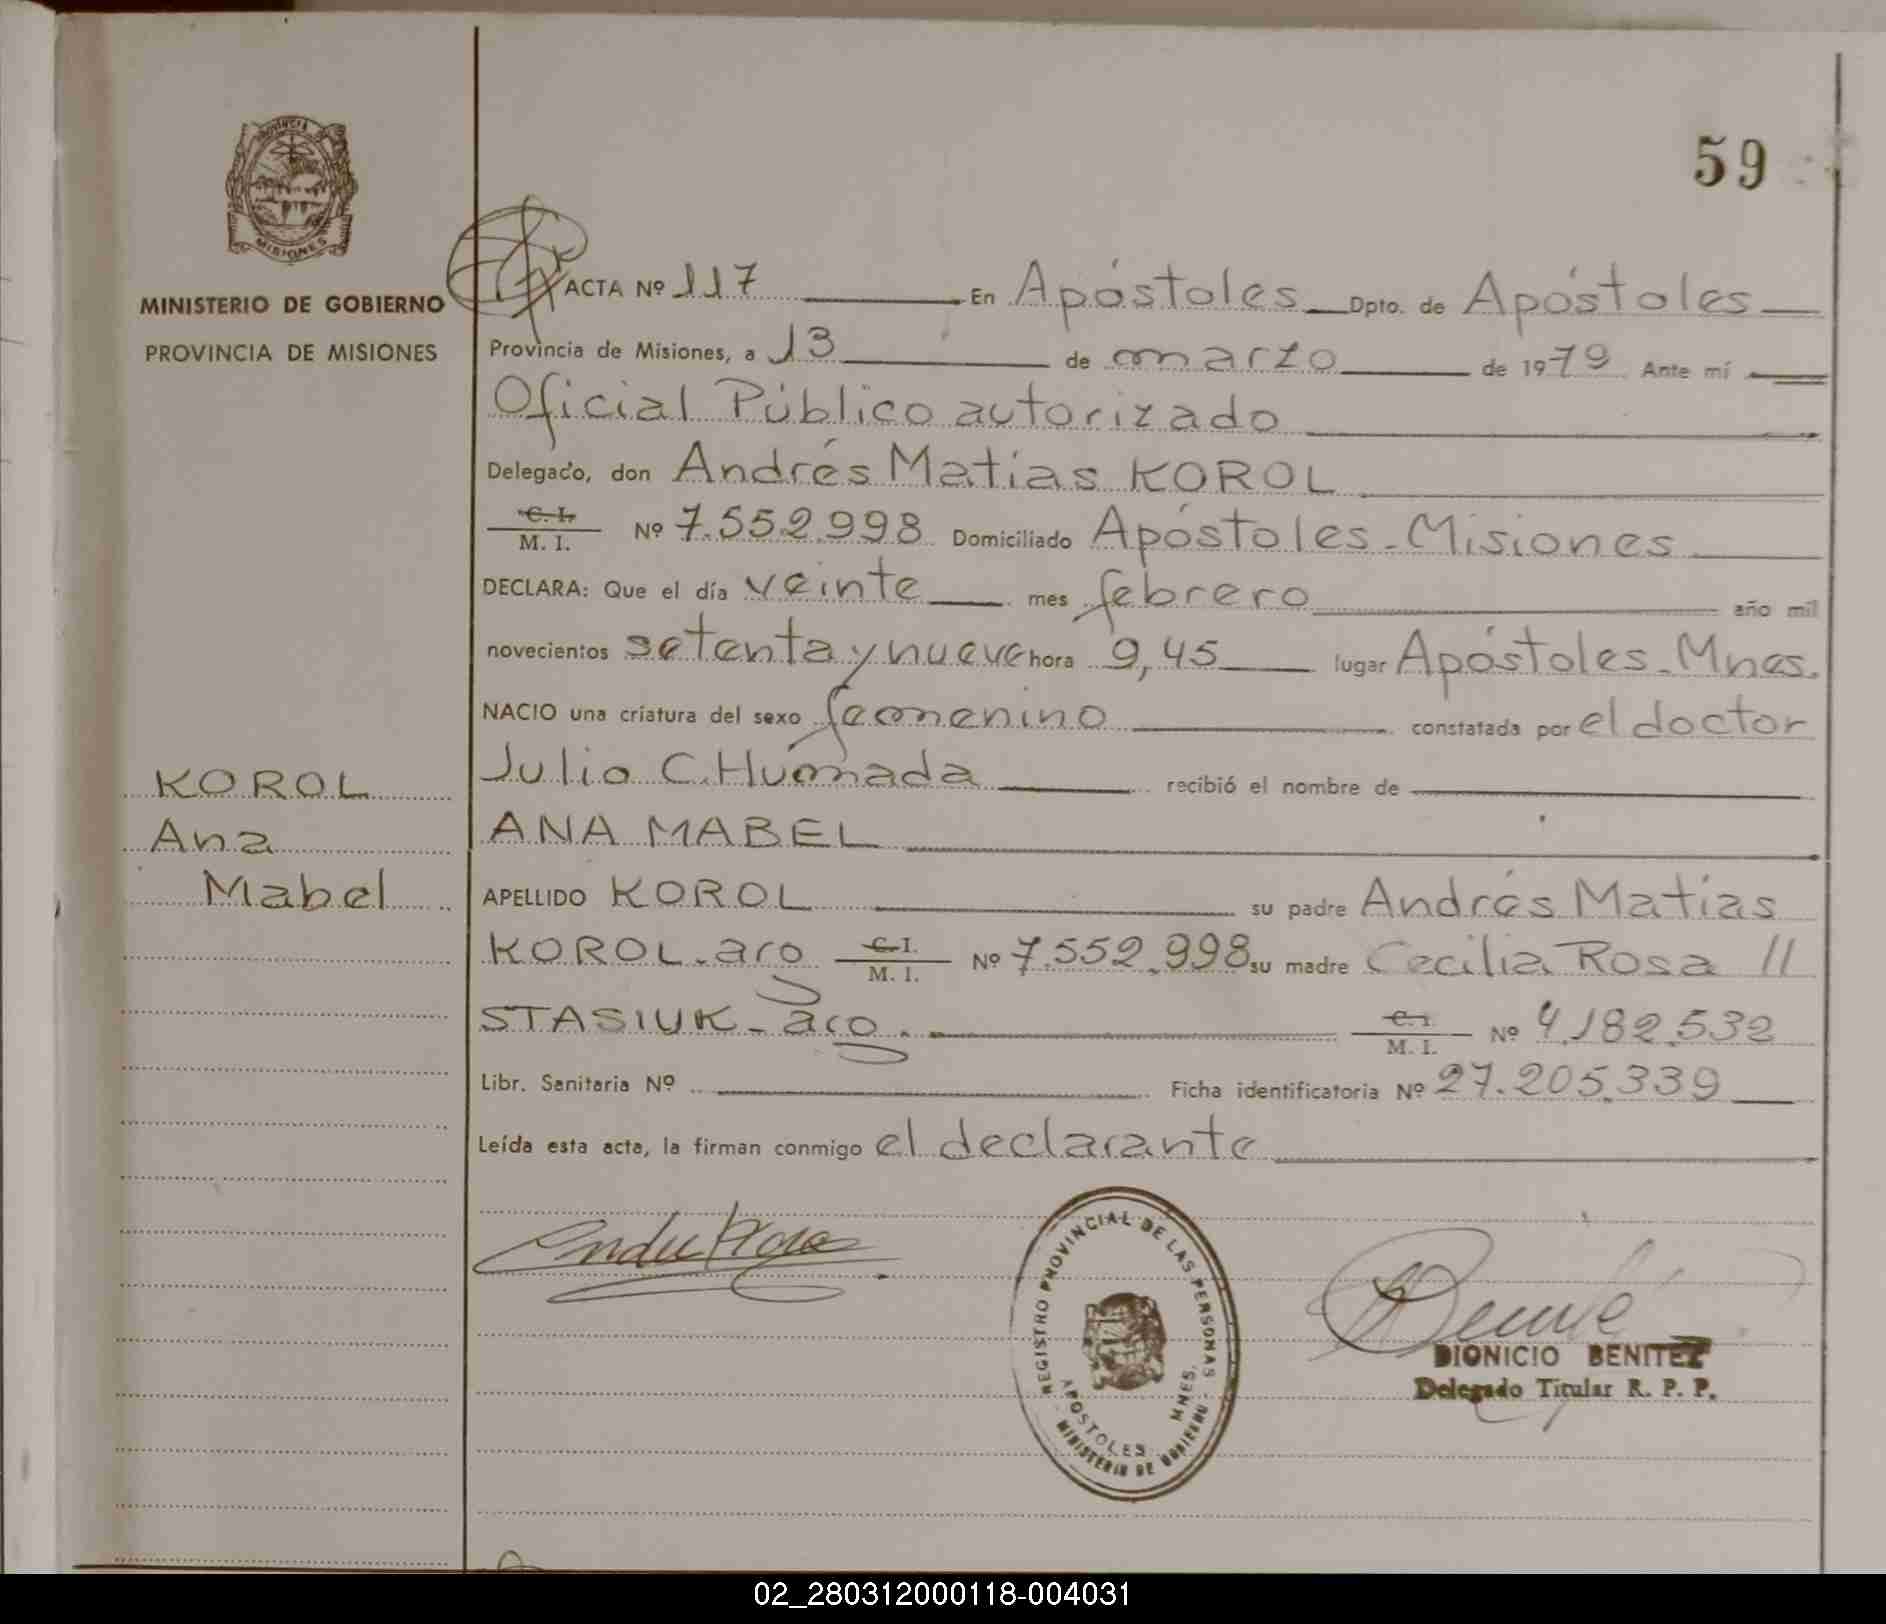 59
PROVINCIA DE
MISIONES
MINISTERIO DE GOBIERNO
PROVINCIA DE MISIONES
ACTA Nº 117 En Apóstoles Dpto. de Apóstoles
Provincia de Misiones, a 13 de marzo de 1979 Ante mí
Oficial Público autorizado
Delegado, don Andrés Matías KOROL
C. I.
M. I. Nº 7.552.998 Domiciliado Apóstoles - Misiones
DECLARA: Que el día veinte mes febrero año mil
novecientos setenta y nueve hora 9,45 lugar Apóstoles - Mnes.
NACIO una criatura del sexo femenino constatada por el doctor
Julio C. Humada recibió el nombre de
ANA MABEL
KOROL
Ana
Mabel
APELLIDO KOROL su padre Andrés Matías
KOROL - arg C. I.
M. I. Nº 7.552.998 su madre Cecilia Rosa //
STASIUK - arg. C. I.
M. I. Nº 4.182.532
Libr. Sanitaria Nº Ficha identificatoria Nº 27.205.339
Leída esta acta, la firman conmigo el declarante
REGISTRO PROVINCIAL DE LAS PERSONAS
APOSTOLES MNES.
MINISTERIO DE GOBIERNO
DIONICIO BENITEZ
Delegado Titular R. P. P.
02_280312000118-004031